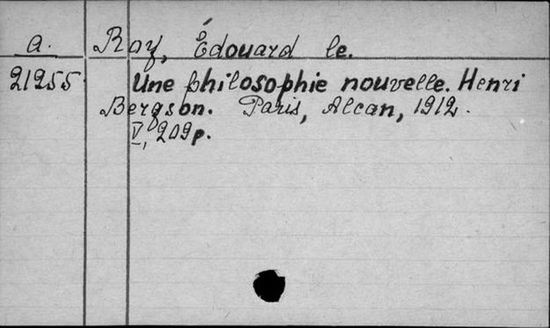 a. Roy, Édouard le.
21255 Une philosophie nouvelle. Henri
Bergson. Paris, Alcan, 1912.
V, 209 p.